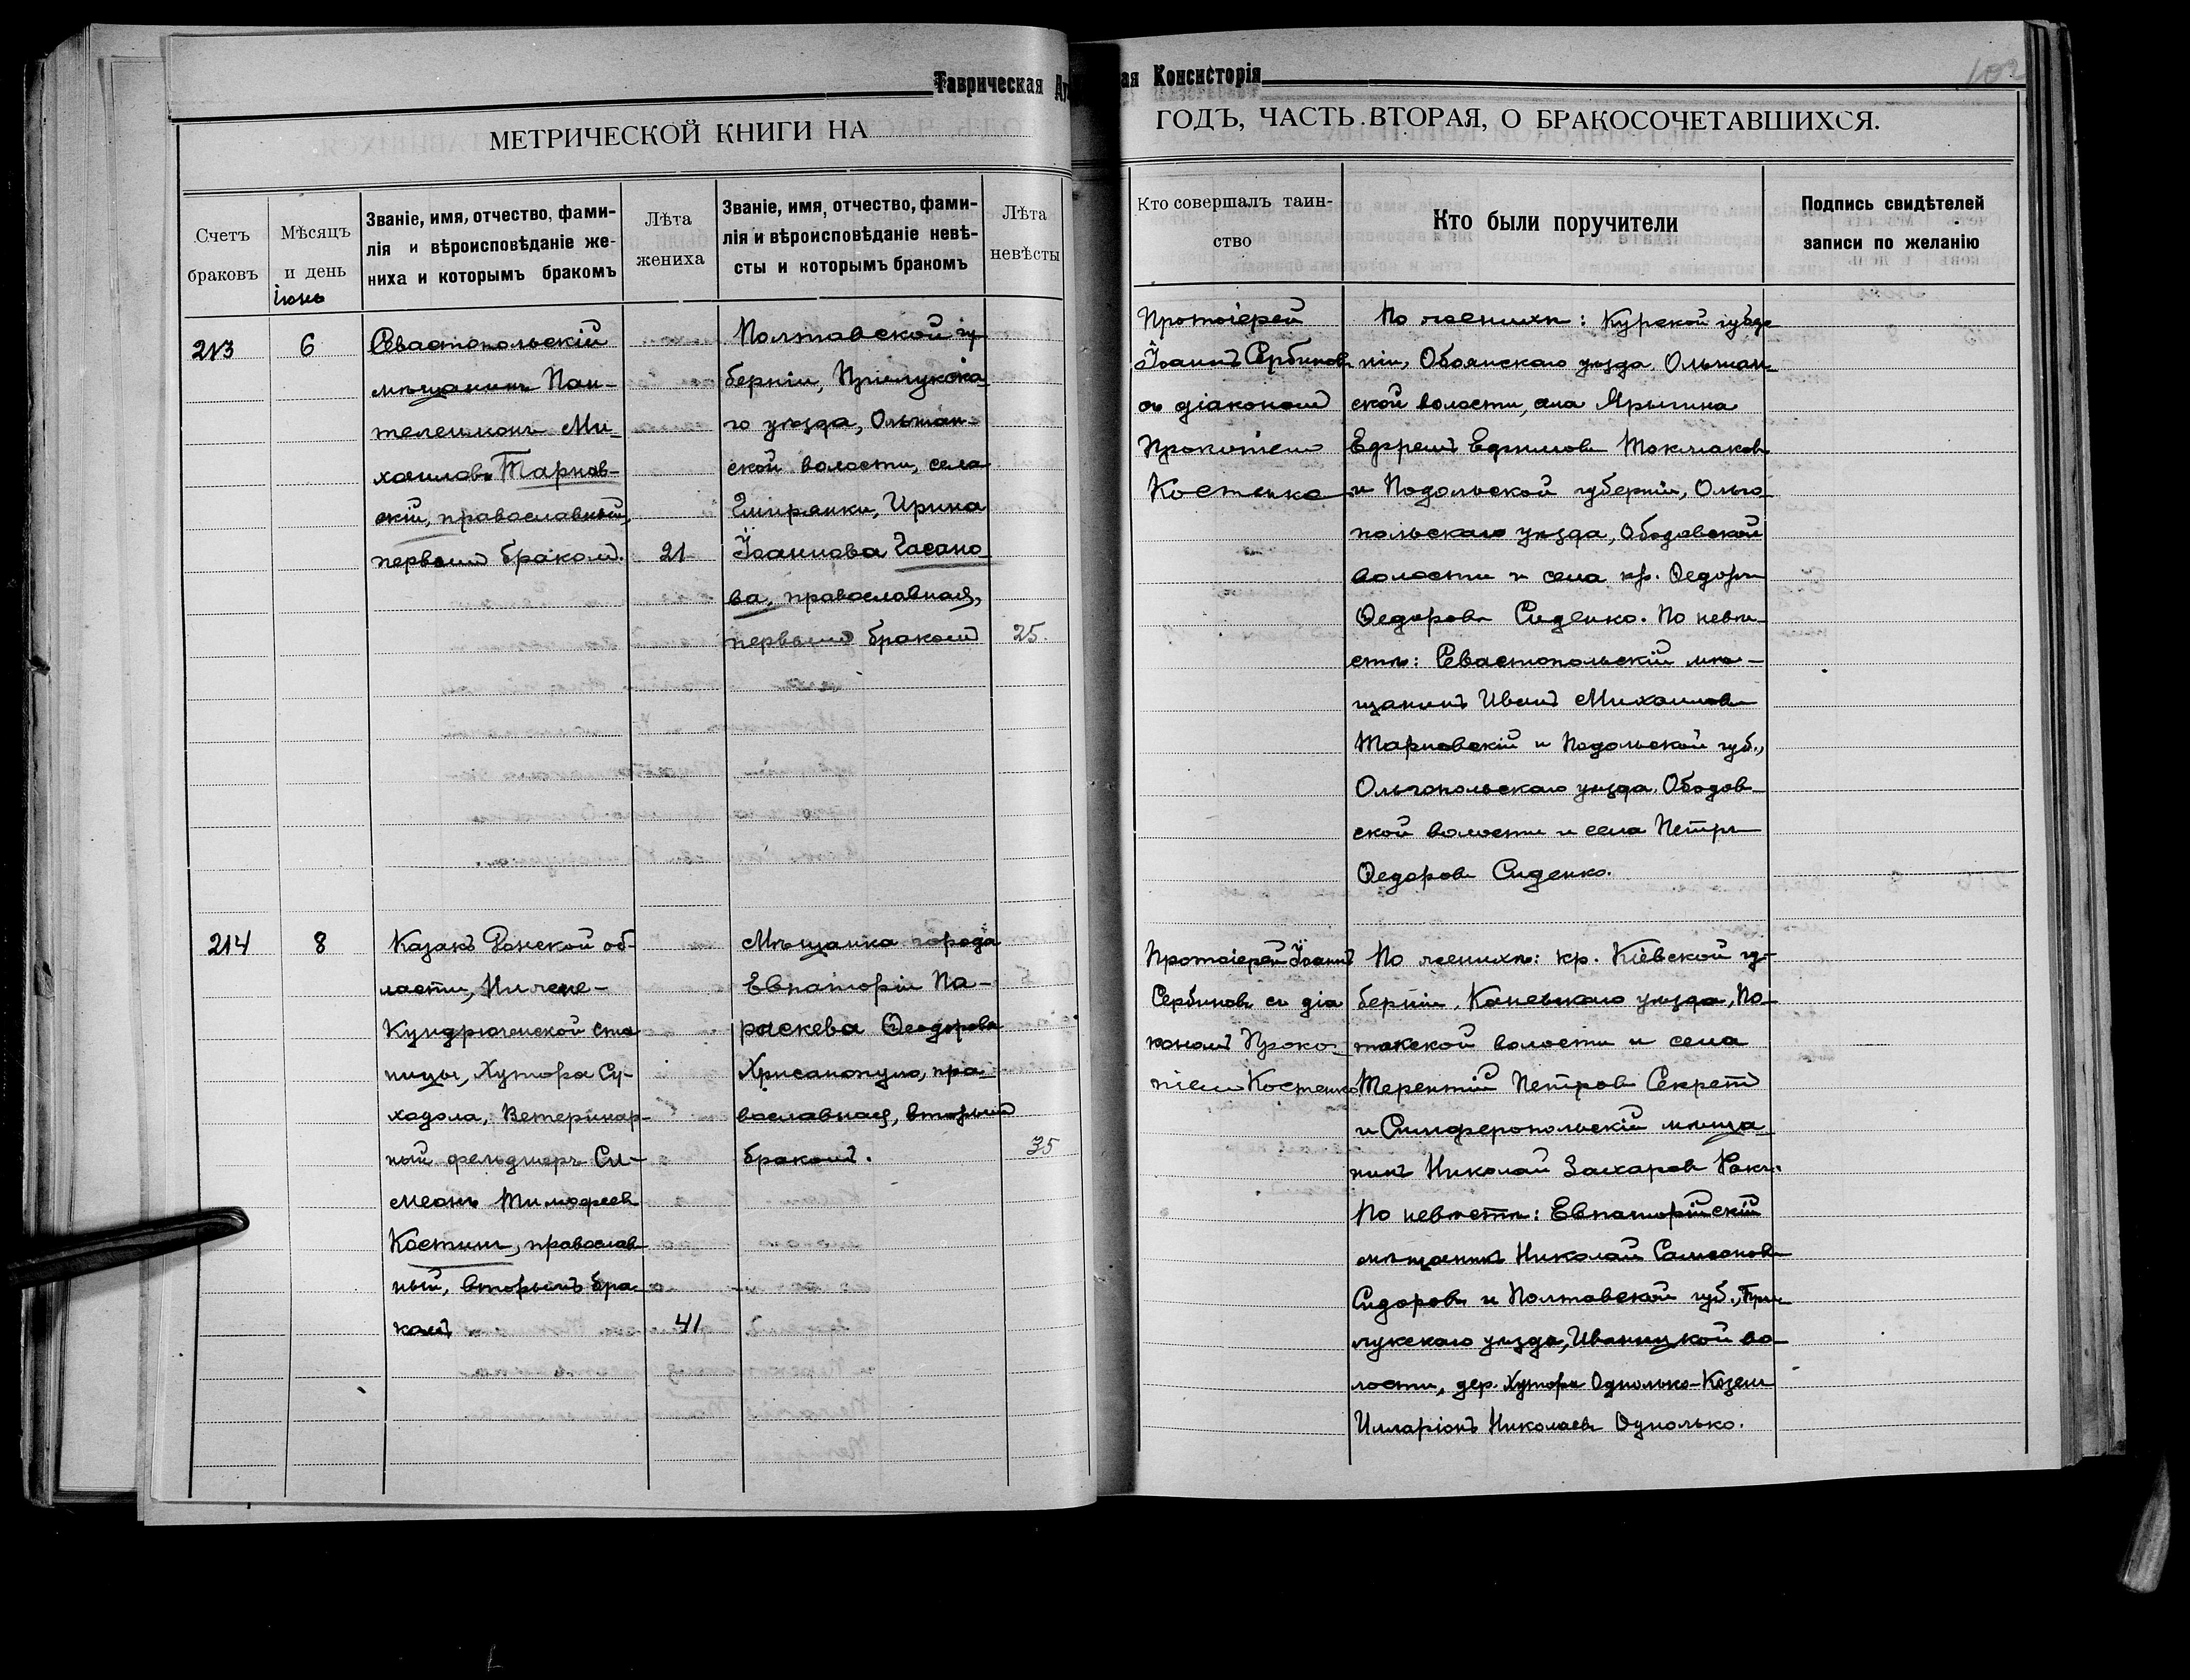 Таврическая
ая Консисторія
102
МЕТРИЧЕСКОЙ КНИГИ НА
ГОДЪ, ЧАСТЬ ВТОРАЯ, О БРАКОСОЧЕТАВШИХСЯ.
Счетъ
браковъ
Мѣсяцъ
и день
Іюнь
Званіе, имя, отчество, фами-
лія и вѣроисповѣданіе же-
ниха и которымъ бракомъ
Лѣта
жениха
Званіе, имя, отчество, фами-
лія и вѣроисповѣданіе невѣ-
сты и которымъ бракомъ
Лѣта
невѣсты
Кто совершалъ таин-
ство
Кто были поручители
Подпись свидѣтелей
записи по желанію
213
6
Севастопольскій
мѣщанинъ Пан-
телеимонъ Ми-
хаиловъ Тарнов-
скій, православный,
первымъ бракомъ.
21
Полтавской гу
берніи, Прилукска
го уѣзда, Ольшан-
ской волости, села
Ирина
Іоаннова Гасано-
ва, православная,
первымъ бракомъ
25
Протоіерей
Іоаннъ Сербиновъ
съ діакономъ
Прокопіемъ
Костенко
По женихѣ: Курской губер
ніи, Обоянскаго уѣзда, Ольшан-
ской волости, села Ярыгина
Ефремъ Ефимовъ Токмаковъ
и Подольской губерніи, Ольго-
польскаго уѣзда, Ободовской
волости и села кр. Ѳедоръ
Ѳедоровъ Сиденко. По невѣ-
стѣ: Севастопольскій мѣ-
щанинъ Иванъ Михаиловъ
Тарновскій и Подольской губ.,
Ольгопольскаго уѣзда, Ободов-
ской волости и села Петръ
Ѳедоровъ Сиденко.
214
8
Казакъ Донской об-
ласти, Нижне-
Кундрюченской ста
ницы, Хутора Су-
ходола, Ветеринар-
ный фельдшеръ Си-
меонъ Тимофеевъ
Костинъ, православ
ный, вторымъ бра-
комъ
41
Мѣщанка города
Евпаторіи Па-
раскева Ѳеодорова
Хрисанопуло, пра-
вославная, вторымъ
бракомъ.
35
Протоіерей Іоаннъ
Сербиновъ съ діа
кономъ Проко-
піемъ Костенко
По женихѣ: кр. Кіевской гу-
берніи, Каневскаго уѣзда, По-
токской волости и села
Терентій Петровъ Секретъ
и Симферопольскій мѣща-
нинъ Николай Захаровъ
По невѣстѣ: Евпаторійскій
мѣщанинъ Николай Самсоновъ
Сидоровъ и Полтавской губ., При
лукскаго уѣзда, Иваницкой во-
лости, дер. Хутора
Илларіонъ Николаевъ